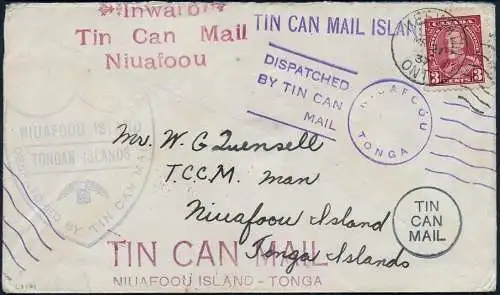 Inward
Tin Can Mail
Niuafoou
TIN CAN MAIL ISLAND
DISPATCHED
BY TIN CAN
MAIL
NIUAFOOU
TONGA
CANADA
3 3
ONT
NIUAFOOU ISLAND
TONGAN ISLANDS
BY TIN CAN MAIL
Mr. W G Quensell
T.C.C.M. man
Niuafoou Island
Tonga Islands
TIN
CAN
MAIL
TIN CAN MAIL
NIUAFOOU ISLAND - TONGA